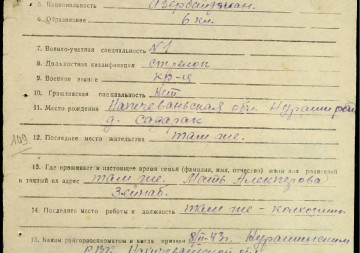 5. Национальность Азербайджан.
6. Образование 6 кл.
7. Военно-учетная специальность №1
8. Должностная квалификация стрелок
9. Военное звание кр-ц
10. Гражданская специальность Нет
11. Место рождения Нахичеваньская обл. Нурашинский
д. Садарак
12. Последнее место жительства там же.
149
13. Где проживает в настоящее время семья (фамилия, имя, отчество) жены или родителей
и точный их адрес там же. Мать Алекперова
Зейнаб.
14. Последнее место работы и должность там же - колхозник
15. Каким райгорвоенкоматом и когда призван 43г. Нурашинским
РВК